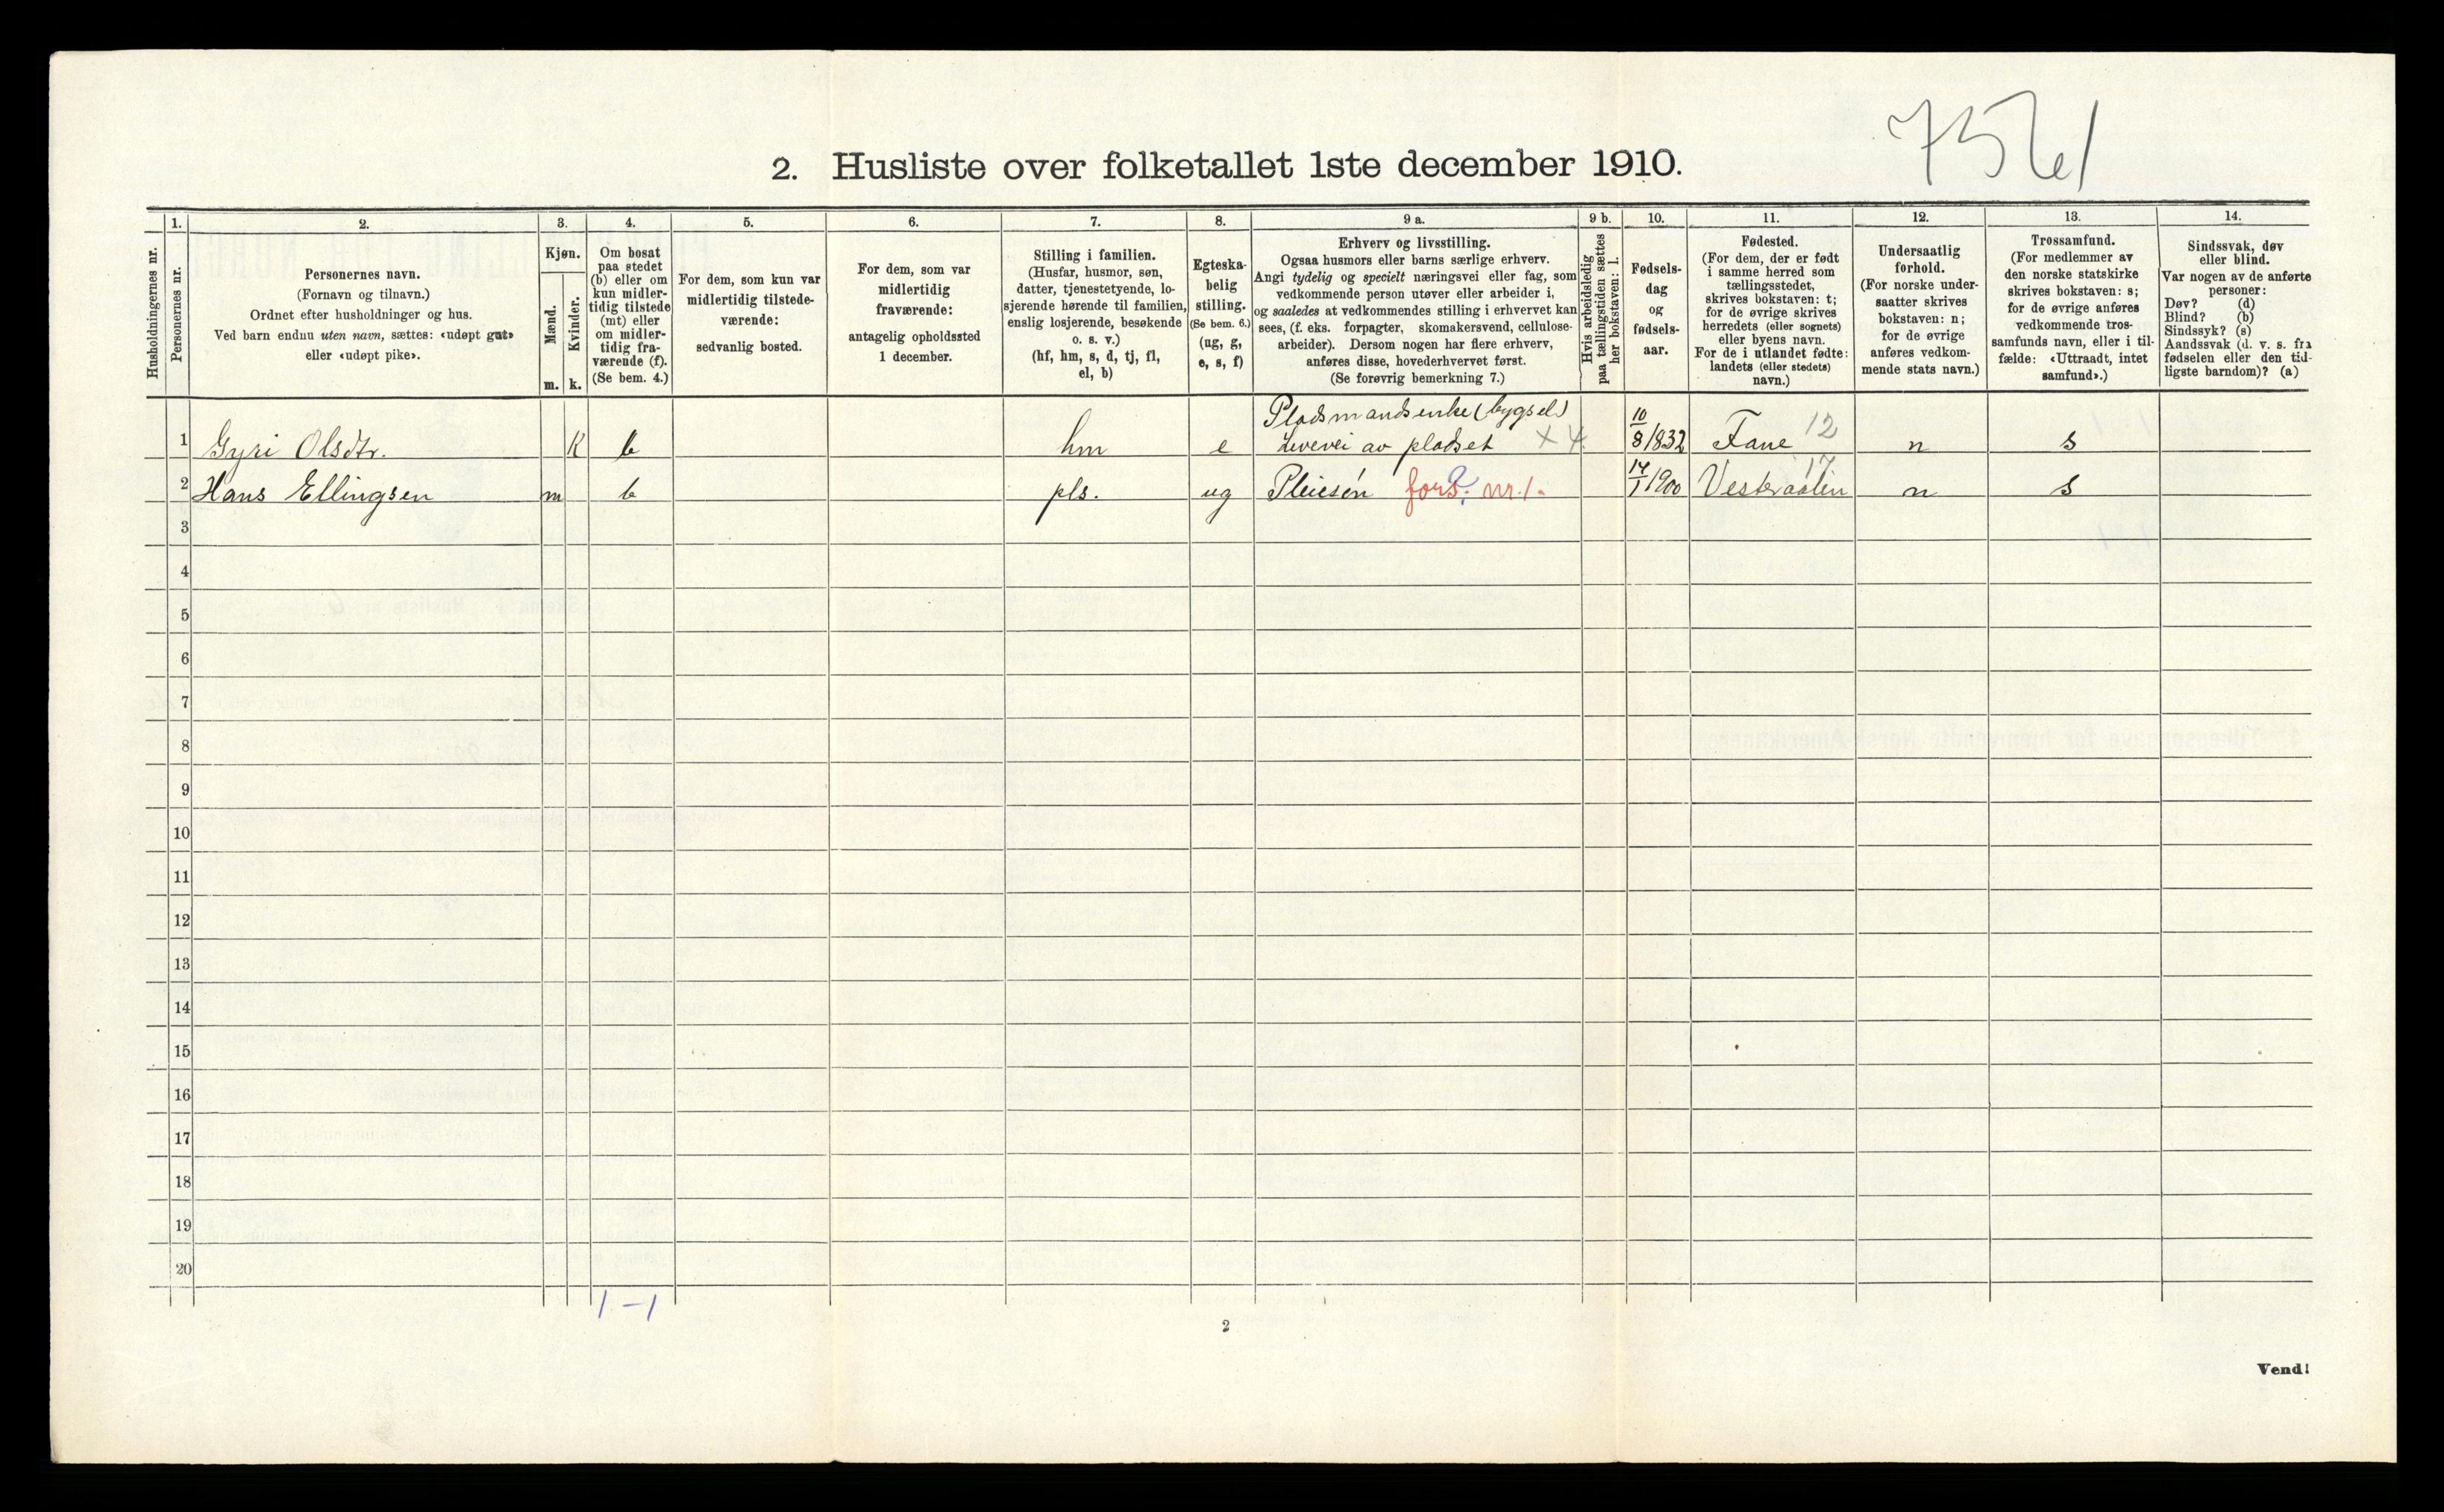 7561
2. Husliste over folketallet 1ste december 1910.
Husholdningernes nr.
1.
Personernes nr.
2.
Personernes navn.
(Fornavn og tilnavn.)
Ordnet efter husholdninger og hus.
Ved barn endnu uten navn, sættes: «udøpt gut»
eller «udøpt pike».
3.
Kjøn.
Mænd.
m.
Kvinder.
k.
4.
Om bosat
paa stedet
(b) eller om
kun midler-
tidig tilstede
(mt) eller
om midler-
tidig fra-
værende (f).
(Se bem. 4.)
5.
For dem, som kun var
midlertidig tilstede-
værende:
sedvanlig bosted.
6.
For dem, som var
midlertidig
fraværende:
antagelig opholdssted
1 december.
7.
Stilling i familien.
(Husfar, husmor, søn,
datter, tjenestetyende, lo-
sjerende hørende til familien,
enslig losjerende, besøkende
o. s. v.)
(hf, hm, s, d, tj, fl,
el, b)
8.
Egteska-
belig
stilling.
(Se bem. 6.)
(ug, g,
e, s, f)
9 a.
Erhverv og livsstilling.
Ogsaa husmors eller barns særlige erhverv.
Angi tydelig og specielt næringsvei eller fag, som
vedkommende person utøver eller arbeider i,
og saaledes at vedkommendes stilling i erhvervet kan
sees, (f. eks. forpagter, skomakersvend, cellulose-
arbeider). Dersom nogen har flere erhverv,
anføres disse, hovederhvervet først.
(Se forøvrig bemerkning 7.)
9 b.
Hvis arbeidsledig
paa tællingstiden sættes
her bokstaven: l.
10.
Fødsels-
dag
og
fødsels-
aar.
11.
Fødested.
(For dem, der er født
i samme herred som
tællingsstedet,
skrives bokstaven: t;
for de øvrige skrives
herredets (eller sognets)
eller byens navn.
For de i utlandet fødte:
landets (eller stedets)
navn.)
12.
Undersaatlig
forhold.
(For norske under-
saatter skrives
bokstaven: n;
for de øvrige
anføres vedkom-
mende stats navn.)
13.
Trossamfund.
(For medlemmer av
den norske statskirke
skrives bokstaven: s;
for de øvrige anføres
vedkommende tros-
samfunds navn, eller i til-
fælde: «Uttraadt, intet
samfund».)
14.
Sindssvak, døv
eller blind.
Var nogen av de anførte
personer:
Døv? (d)
Blind? (b)
Sindssyk? (s)
Aandssvak (d. v. s. fra
fødselen eller den tid-
ligste barndom)? (a)
Pladsmandsenke (bygsel)
1 Gyri Olsdtr. K b hm e Levevei av pladset X 4. 10/8 1832 Fane 12 n s
2 Hans Ellingsen m b pls. ug Pleiesøn fors. nr. 1. 14/1 1900 Vesteraalen 17 n s
3
4
5
6
7
8
9
10
11
12
13
14
15
16
17
18
19
20
1 – 1
2
Vend!